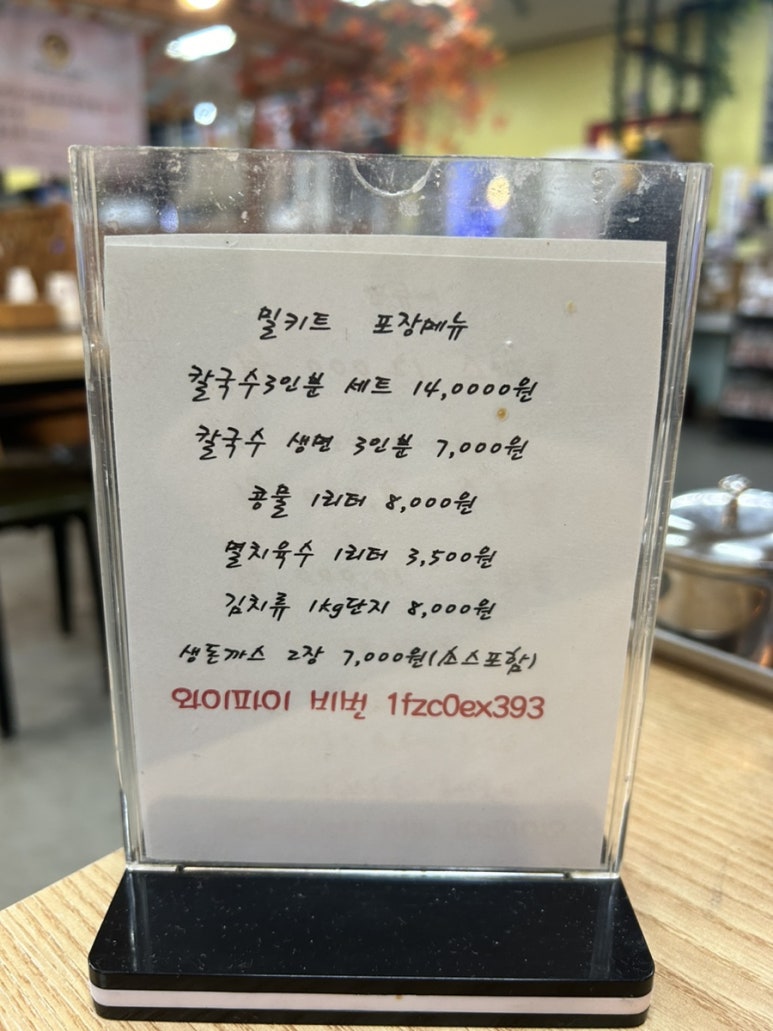 밀키트 포장메뉴
칼국수3인분 세트 14,0000원
칼국수 생면 3인분 7,000원
콩물 1리터 8,000원
멸치육수 1리터 3,500원
김치류 1kg단지 8,000원
생돈까스 2장 7,000원(소스포함)
와이파이 비번 1fzc0ex393